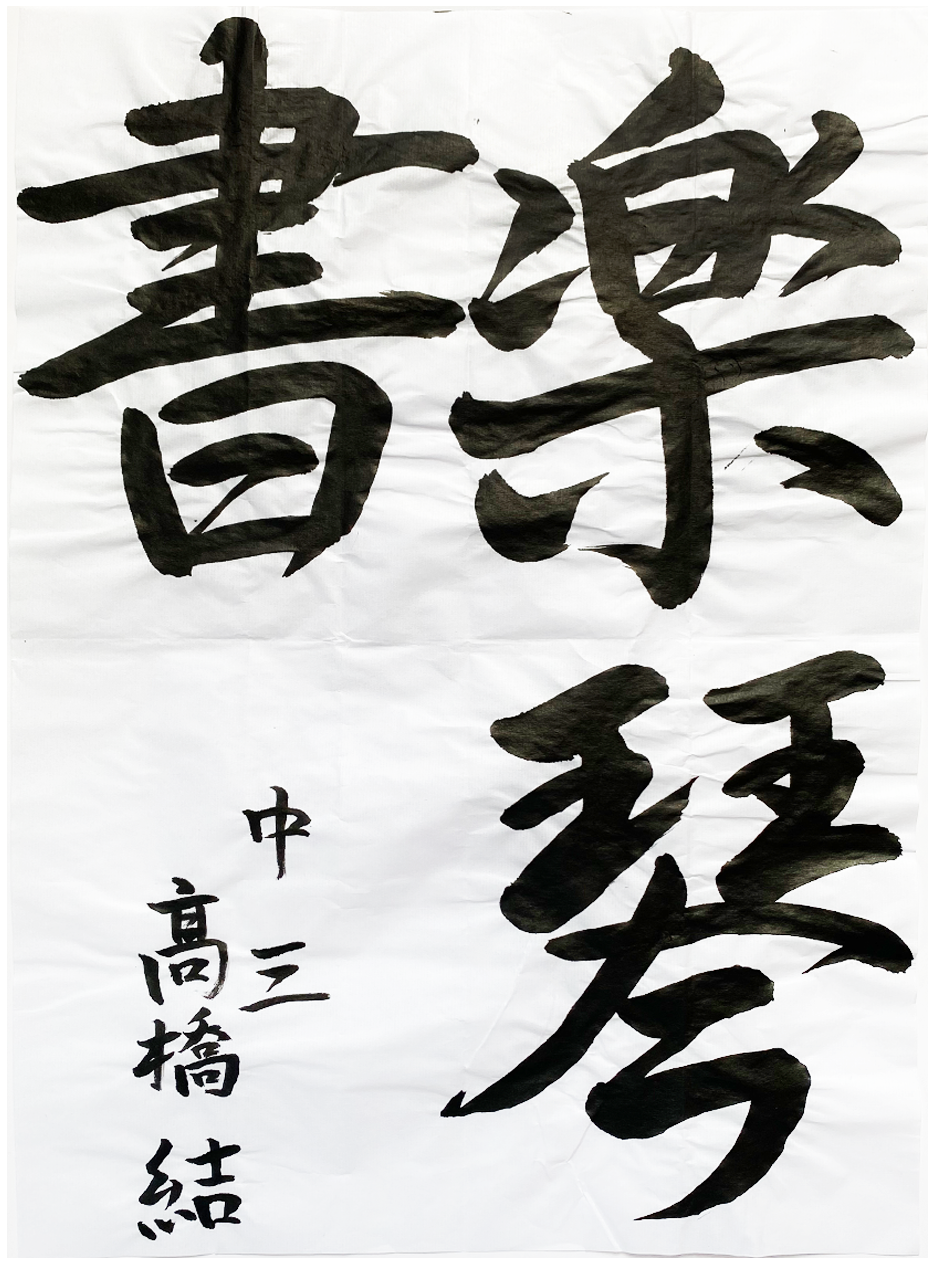 樂琴
書
中三
高橋結